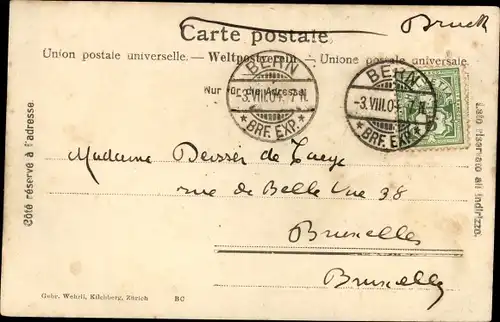 Carte postale.
Bruck
Union postale universelle. — Weltpostverein — Unione postale universale.
Nur für die Adresse.
BERN
-3.VIII.04. 7
★ BRF. EXP. ★
BERN
-3.VIII.04. 7
★ BRF. EXP. ★
Côté réservé à l'adresse.
Lato riservato all' indirizzo.
Madame de
rue de Belle Vue 38
Bruxelles
Bruxelles
Gebr. Wehrli, Kilchberg, Zürich BC